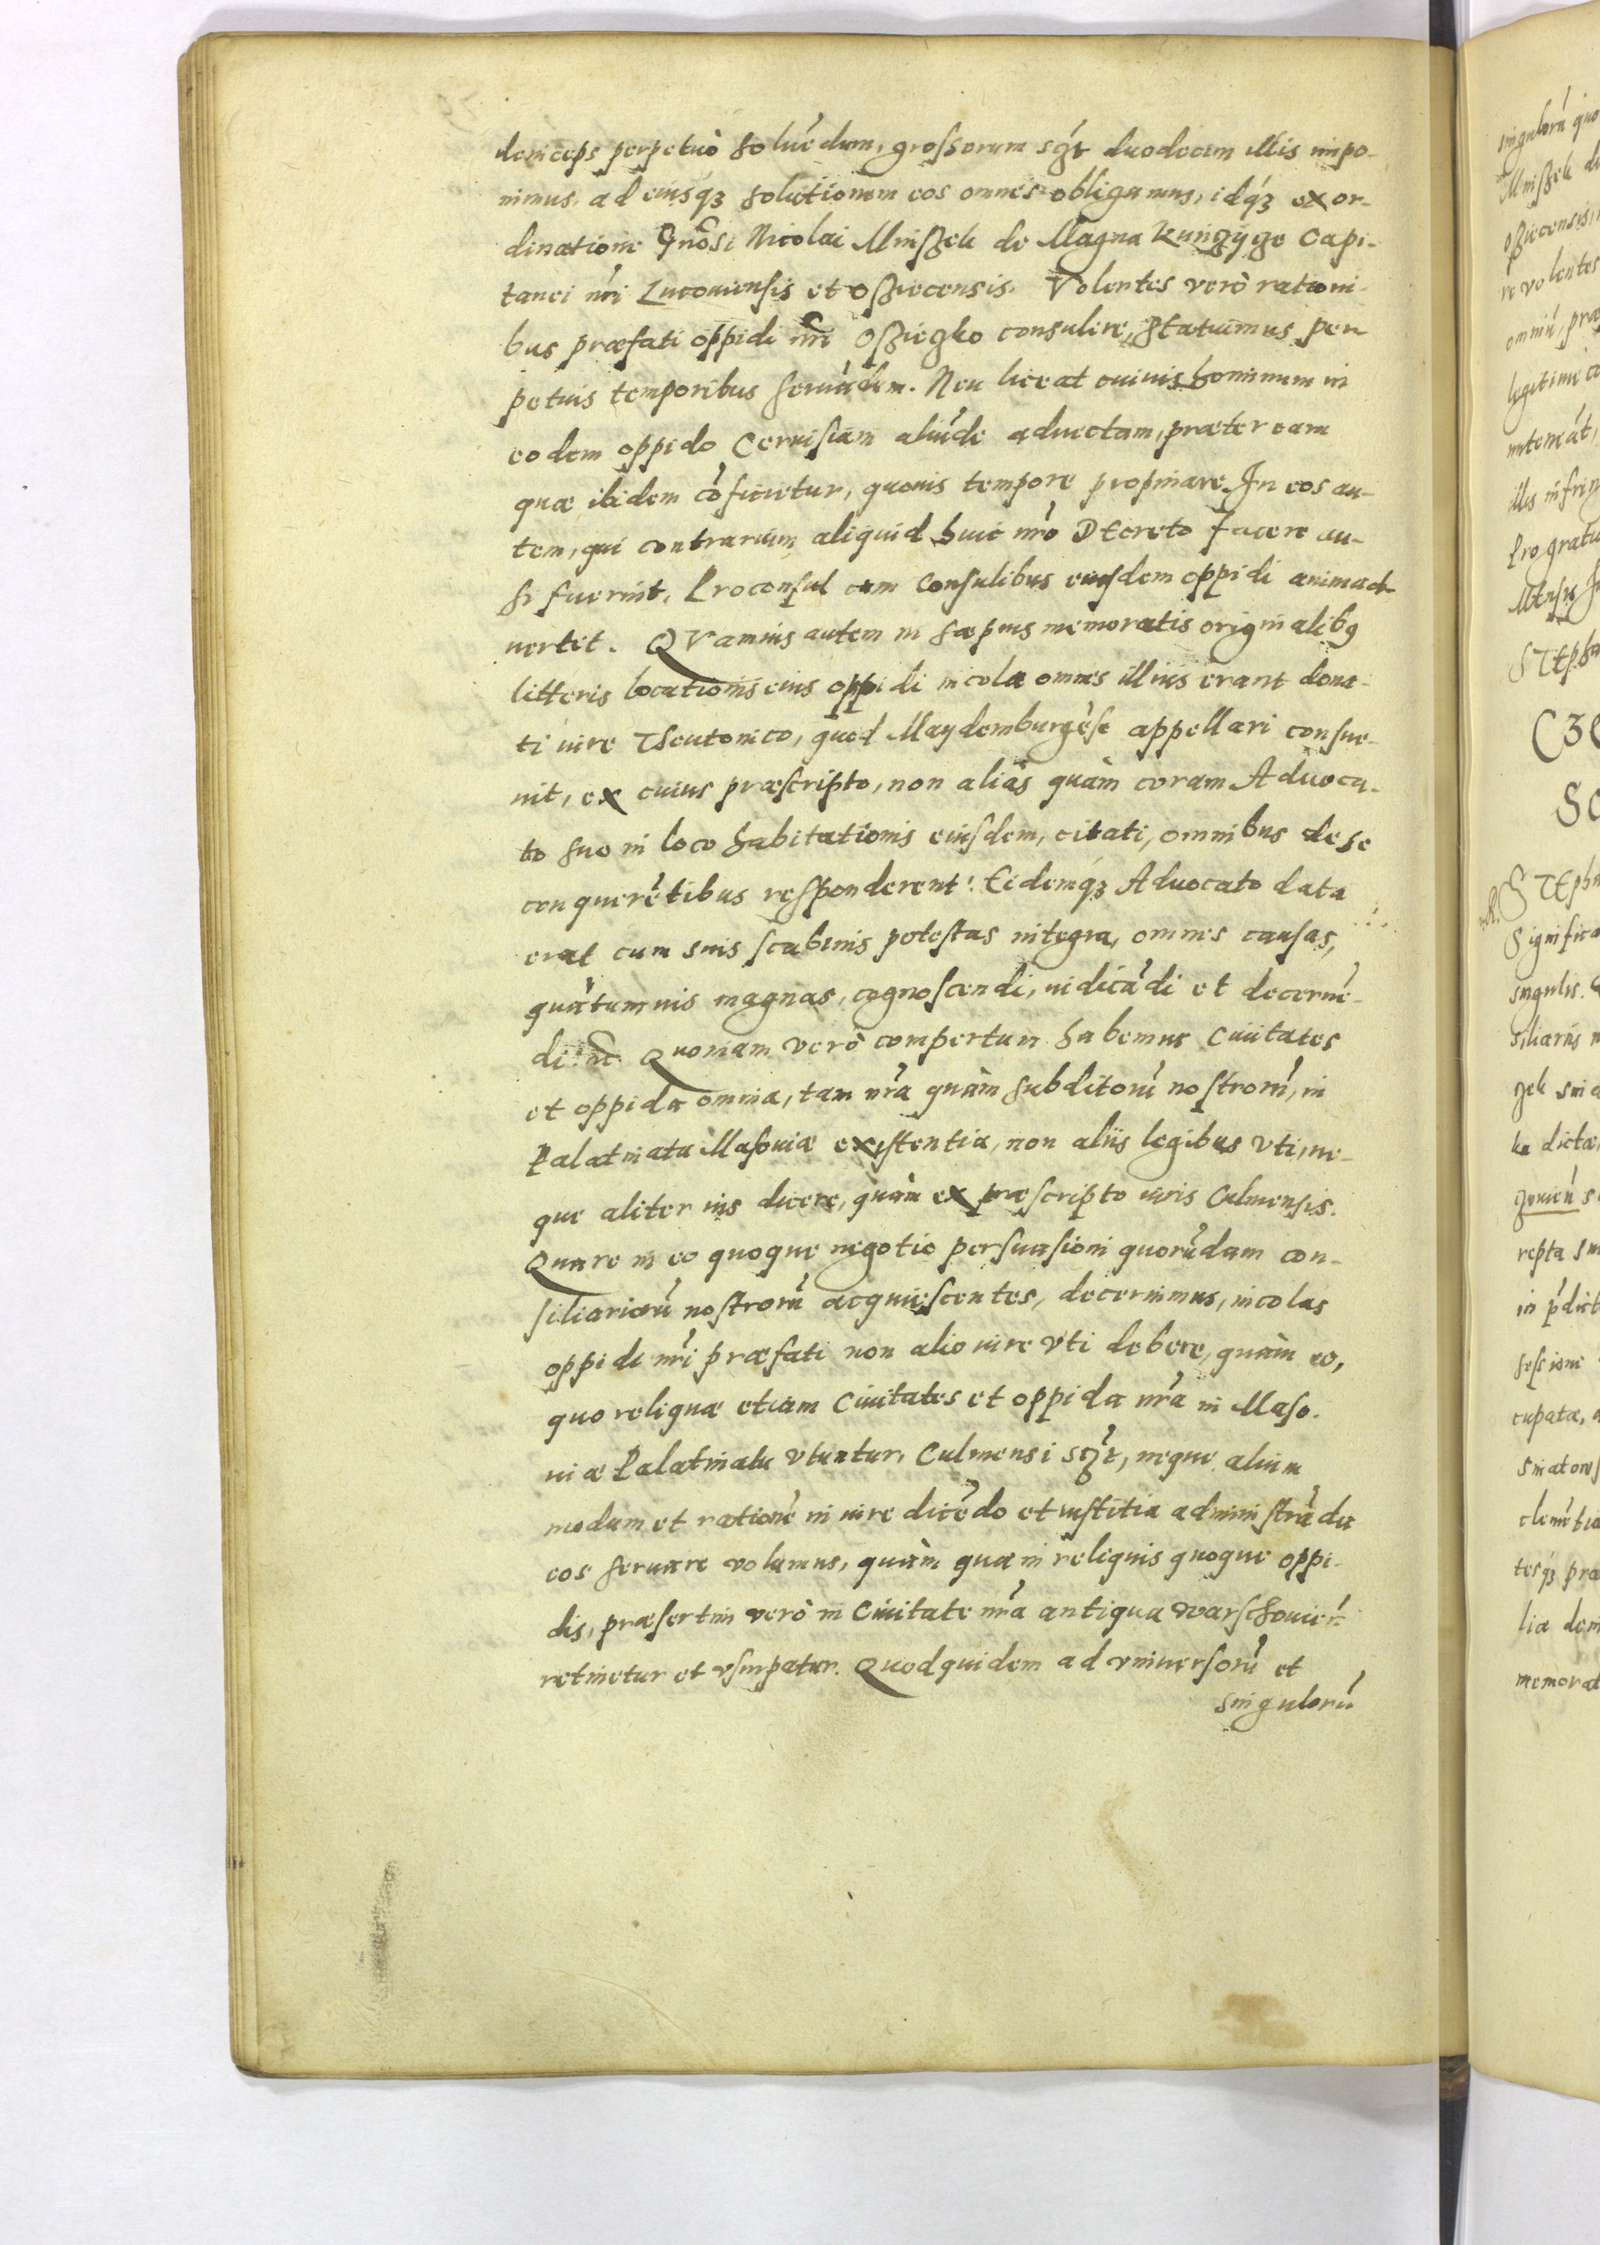 deinceps perpetuò soluẽdum, grossorum sc̃zt duodecim illis impo-
nimus, ad eiusq́ȝ solutionem eos omnes obligamus, idq́ȝ ex or-
dinatione Gñosi Nicolai Mniszek de Magna Kunczycze Capi-
tanei nr̃i Lucouiensis et Osziecensis. Volentes verò rationi-
bus præfati oppidi nr̃i Osziegko consulere, Statuimus per
petuis temporibus seruãdum. Neu liceat cuiuis hominum in
eodem oppido Ceruisiam aliũde aduectam, præter eam
quæ ibidem cõficietur, quouis tempore propinare. In eos au-
tem, qui contrarium aliquid huic nr̃o Decreto facere au-
si fuerint, Proconsul cum Consulibus eiusdem oppidi animad-
uertet. QVamuis autem in sæpius memoratis originalibꝯ
litteris locationis eius oppidi incolæ omnes illius erant dona-
ti iure Theutonico, quod Maydemburgẽse appellari consue-
uit, ex cuius præscripto, non aliàs quàm coram Aduoca-
to suo in loco habitationis eiusdem, citati, omnibus de se
conquerẽtibus responderent: Eidemq́ȝ Aduocato data
erat cum suis scabinis potestas integra, omnes causas,
quãtumuis magnas, cognoscendi, iudicãdi et decernẽ-
di &c. Quoniam verò compertum habemus Ciuitates
et oppida omnia, tam nr̃a quàm subditorũ nostrorũ, in
Palatinatu Masouiæ existentia, non aliis legibus vti, ne-
que aliter ius dicere, quàm ex præscripto iuris Culmensis.
Quare in eo quoque negotio persuasioni quorũdam con-
siliariorũ nostrorũ acquiescentes, decernimus, incolas
oppidi nr̃i præfati non alio iure vti debere, quàm eo,
quo reliquæ etiam Ciuitates et oppida nr̃a in Maso-
uiæ Palatinatu vtuntur, Culmensi sc̃zt, neque alium
modum et rationẽ in iure dicẽdo et iustitia administrãda
eos seruare volumus, quàm quæ in reliquis quoque oppi-
dis, præsertim verò in Ciuitate nr̃a antiqua Warschouien̄
retinetur et vsurpatur. Quod quidem ad vniuersorũ et
singulorũ